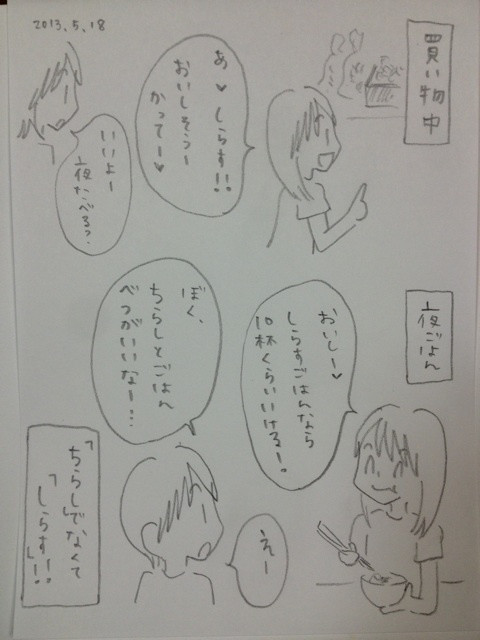 2013.5.18
買い物中
あ♥しらす!!
おいしそうー
かってー♥
いいよー
夜たべるっ.
夜ごはん
おいしー♥
しらすごはんなら
10杯くらいいけるー。
ぼく、
ちらしとごはん
べつがいいなー…
えー
「ちらし」でなくて
「しらす」!!